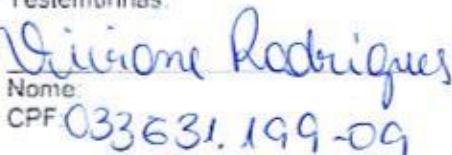 Testemunhas:
Viviane Rodrigues
Nome:
CPF: 033631.199-09